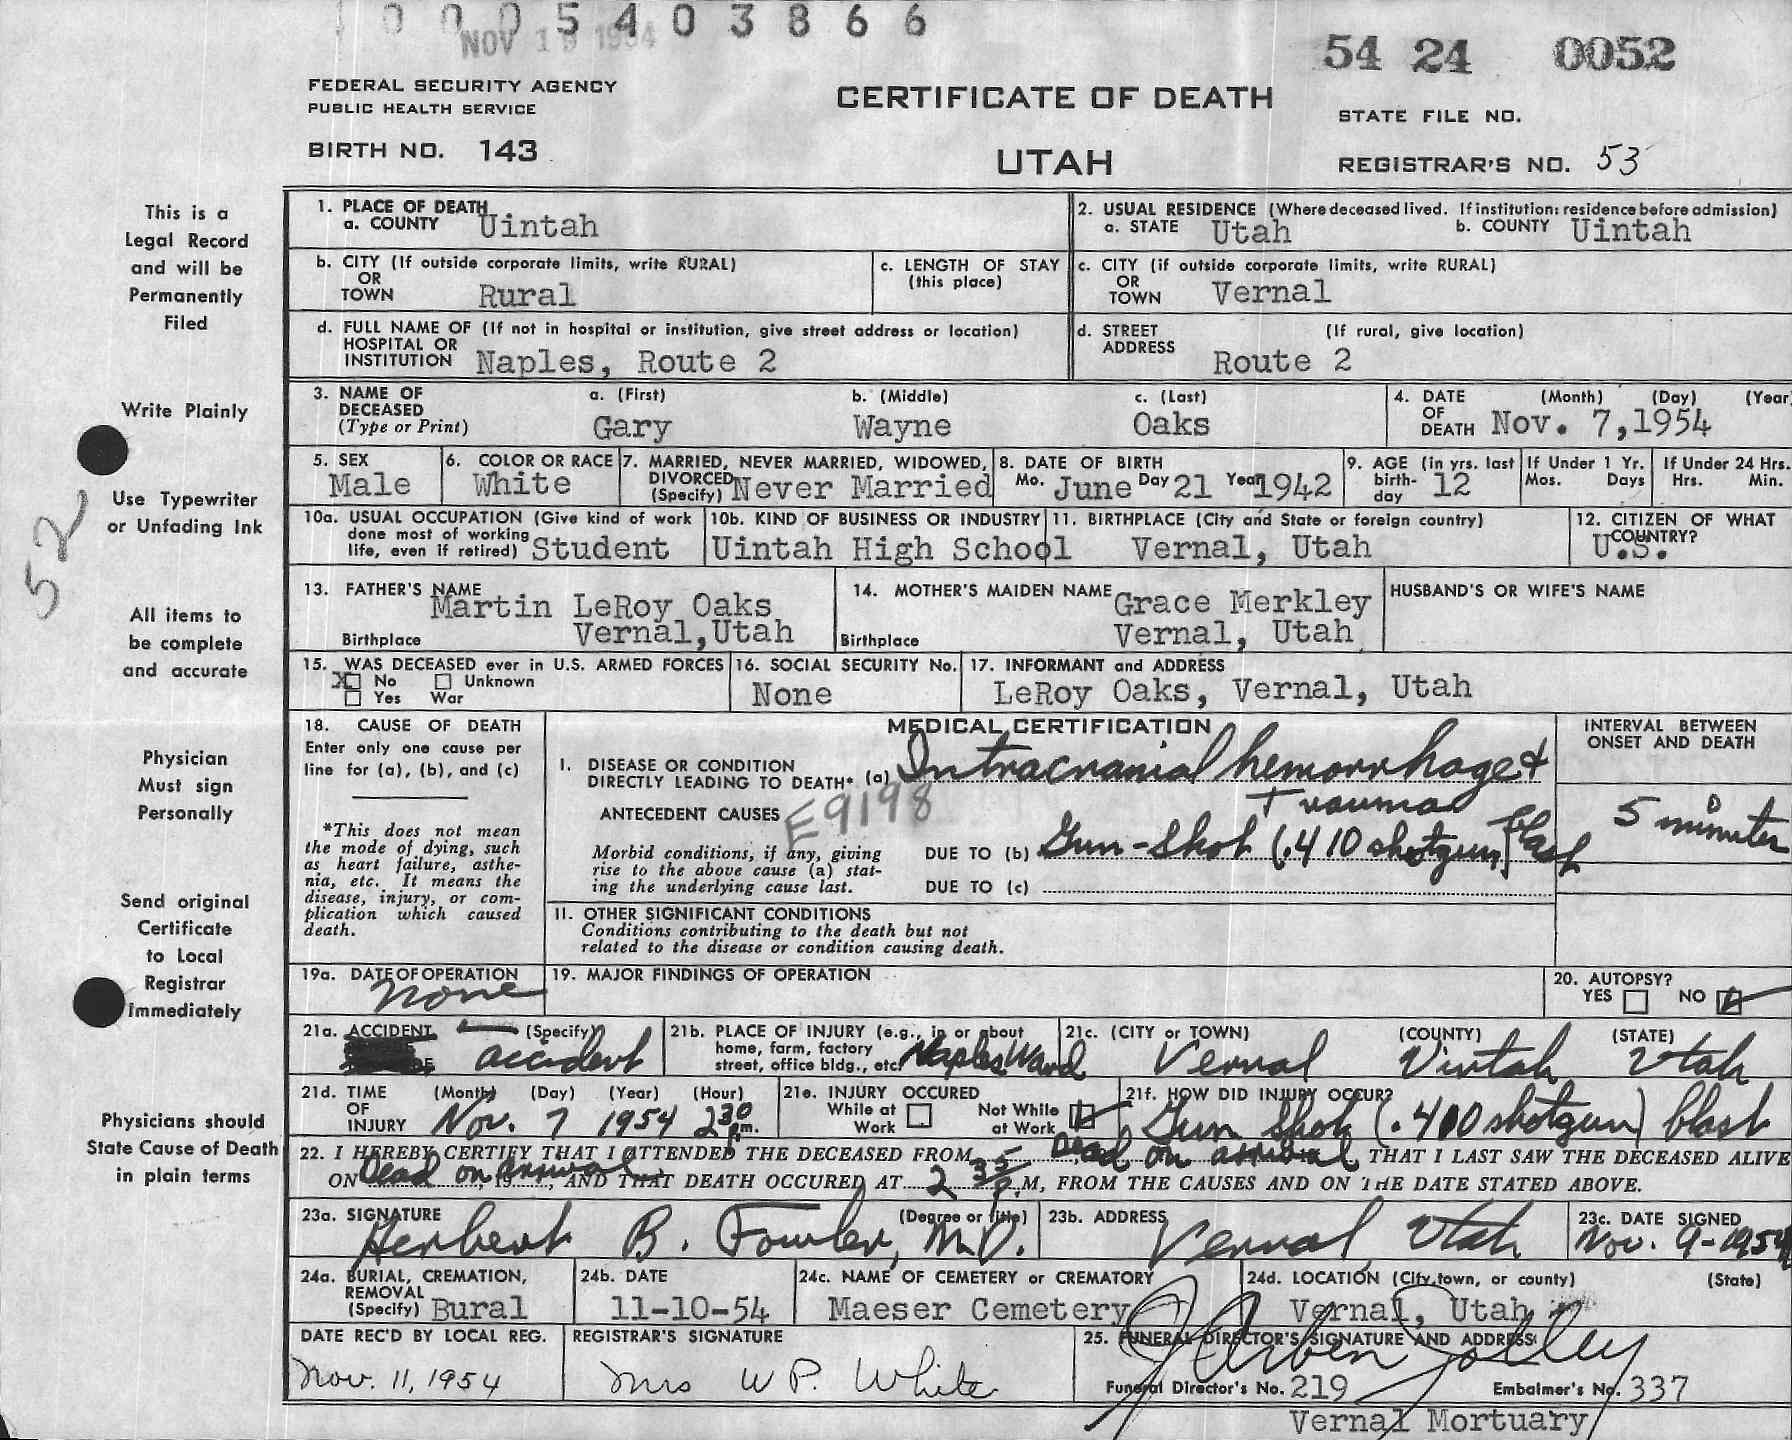 10005403866
NOV 19 1954
54 24 0052
FEDERAL SECURITY AGENCY
PUBLIC HEALTH SERVICE
CERTIFICATE OF DEATH
STATE FILE NO.
BIRTH NO. 143
UTAH
REGISTRAR'S NO. 53
This is a
Legal Record
and will be
Permanently
Filed
Write Plainly
Use Typewriter
or Unfading Ink
52
All items to
be complete
and accurate
Physician
Must sign
Personally
Send original
Certificate
to Local
Registrar
Immediately
Physicians should
State Cause of Death
in plain terms
1. PLACE OF DEATH
a. COUNTY Uintah
2. USUAL RESIDENCE (Where deceased lived. If institution: residence before admission)
a. STATE Utah b. COUNTY Uintah
b. CITY (If outside corporate limits, write RURAL)
OR
TOWN Rural
c. LENGTH OF STAY
(this place)
c. CITY (if outside corporate limits, write RURAL)
OR
TOWN Vernal
d. FULL NAME OF (If not in hospital or institution, give street address or location)
HOSPITAL OR
INSTITUTION Naples, Route 2
d. STREET (If rural, give location)
ADDRESS Route 2
3. NAME OF
DECEASED
(Type or Print)
a. (First) b. (Middle) c. (Last)
Gary Wayne Oaks
4. DATE (Month) (Day) (Year
OF
DEATH Nov. 7,1954
5. SEX
Male
6. COLOR OR RACE
White
7. MARRIED, NEVER MARRIED, WIDOWED,
DIVORCED
(Specify) Never Married
8. DATE OF BIRTH
Mo. June Day 21 Year 1942
9. AGE (in yrs. last
birth-
day 12
If Under 1 Yr.
Mos. Days
If Under 24 Hrs.
Hrs. Min.
10a. USUAL OCCUPATION (Give kind of work
done most of working
life, even if retired) Student
10b. KIND OF BUSINESS OR INDUSTRY
Uintah High School
11. BIRTHPLACE (City and State or foreign country)
Vernal, Utah
12. CITIZEN OF WHAT
COUNTRY?
U.S.
13. FATHER'S NAME
Martin LeRoy Oaks
Birthplace Vernal,Utah
14. MOTHER'S MAIDEN NAME Grace Merkley
Birthplace Vernal, Utah
HUSBAND'S OR WIFE'S NAME
15. WAS DECEASED ever in U.S. ARMED FORCES
X No Unknown
Yes War
16. SOCIAL SECURITY No.
None
17. INFORMANT and ADDRESS
LeRoy Oaks, Vernal, Utah
18. CAUSE OF DEATH
Enter only one cause per
line for (a), (b), and (c)
*This does not mean
the mode of dying, such
as heart failure, asthe-
nia, etc. It means the
disease, injury, or com-
plication which caused
death.
MEDICAL CERTIFICATION
I. DISEASE OR CONDITION
DIRECTLY LEADING TO DEATH* (a) Intracranial hemorrhage &
Trauma
ANTECEDENT CAUSES E9198
Morbid conditions, if any, giving
rise to the above cause (a) stat-
ing the underlying cause last.
DUE TO (b) Gun-Shot (.410 shotgun) blast
DUE TO (c)
INTERVAL BETWEEN
ONSET AND DEATH
5 minutes
II. OTHER SIGNIFICANT CONDITIONS
Conditions contributing to the death but not
related to the disease or condition causing death.
19a. DATE OF OPERATION
none
19. MAJOR FINDINGS OF OPERATION
20. AUTOPSY?
YES NO
21a. ACCIDENT (Specify)
accident
21b. PLACE OF INJURY (e.g., in or about
home, farm, factory
street, office bldg., etc. Naples Ward
21c. (CITY or TOWN) (COUNTY) (STATE)
Vernal Uintah Utah
21d. TIME (Month) (Day) (Year) (Hour)
OF
INJURY Nov. 7 1954 2 30 p.m.
21e. INJURY OCCURED
While at Work Not While at Work
21f. HOW DID INJURY OCCUR?
Gun Shot (.410 shotgun) blast
22. I HEREBY CERTIFY THAT I ATTENDED THE DECEASED FROM Dead on arrival THAT I LAST SAW THE DECEASED ALIVE
ON Dead on arrival, 19, AND THAT DEATH OCCURED AT 2 35 P.M, FROM THE CAUSES AND ON THE DATE STATED ABOVE.
23a. SIGNATURE (Degree or title)
Herbert B. Fowler, M.D.
23b. ADDRESS
Vernal Utah
23c. DATE SIGNED
Nov. 9-1954
24a. BURIAL, CREMATION,
REMOVAL
(Specify) Bural
24b. DATE
11-10-54
24c. NAME OF CEMETERY or CREMATORY
Maeser Cemetery
24d. LOCATION (City, town, or county) (State)
Vernal, Utah
DATE REC'D BY LOCAL REG.
Nov. 11, 1954
REGISTRAR'S SIGNATURE
Mrs W P. White
25. FUNERAL DIRECTOR'S SIGNATURE AND ADDRESS
Funeral Director's No. 219 Embalmer's No. 337
Vernal Mortuary